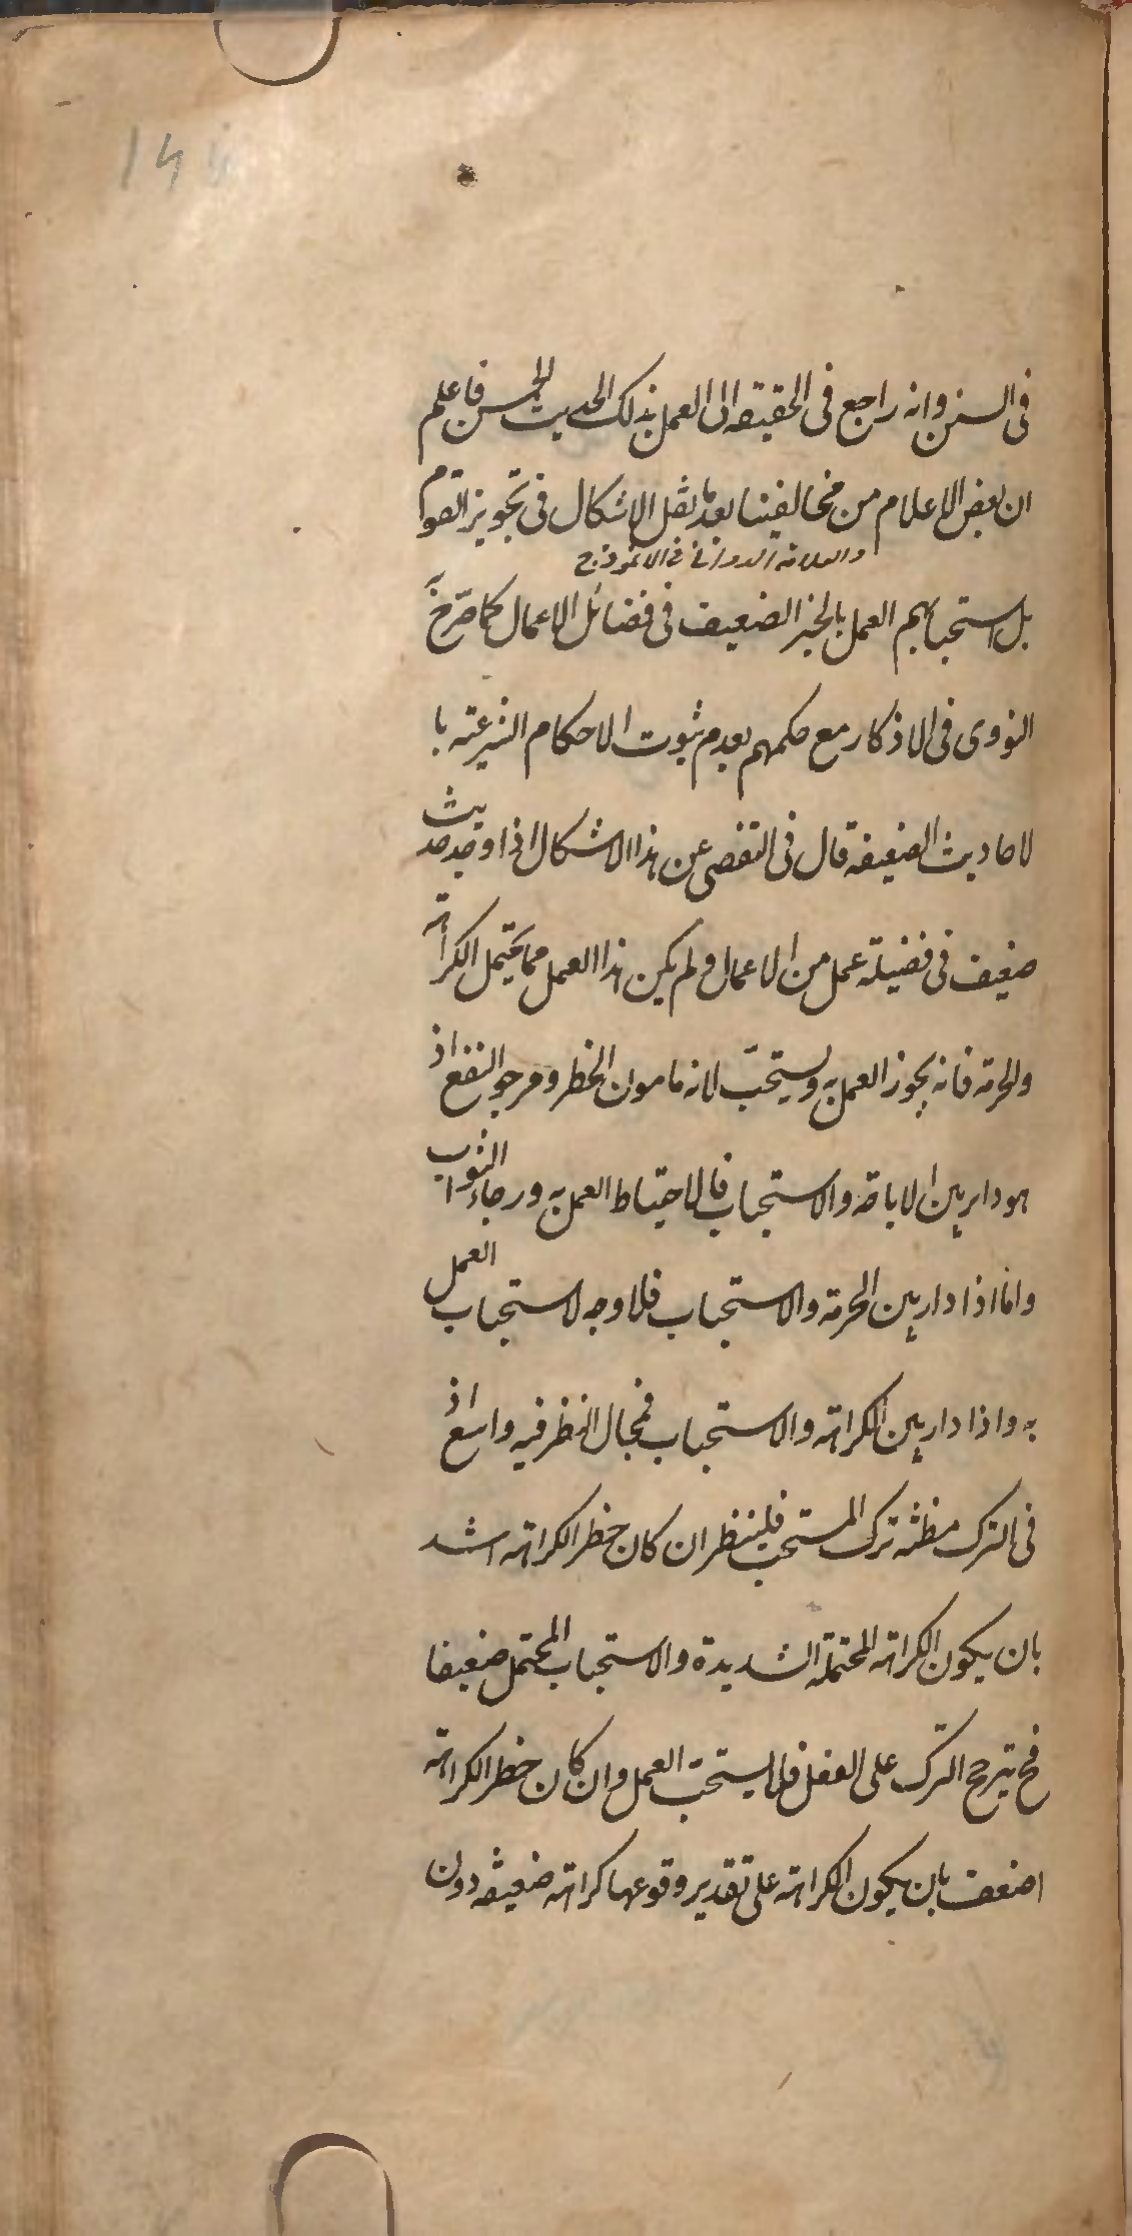 في السنن وانه راجع في الحقيقه الى العمل بذلك الحديث الحسن فاعلم
ان بعض الاعلام من مخالفينا بعد ما نقل الاشكال في تجويز القوم
والعلامة الدواني في الانموذج
بل استحبابهم العمل بالخبر الضعيف في فضائل الاعمال كما صرّح
النووي في الاذكار مع حكمهم بعدم ثبوت الاحكام الشرعية با
لاحاديث الضعيفه قال في التفصي عن هذا الاشكال اذا وجد حديث
ضعيف في فضيلة عمل من الاعمال ولم يكن هذا العمل مما يحتمل الكراهة
والحرمة فانه يجوز العمل به ويستحبّ لانه مامون الخطر ومرجو النفع اذ
هو داير بين الاباحة والاستحباب فالاحتياط العمل به ورجاء الثواب
وامّا اذا دار بين الحرمة والاستحباب فلا وجه لاستحباب العمل
به واذا دار بين الكراهة والاستحباب فمجال النظر فيه واسع اذ
في الترك مظنّه ترك المستحب فلينظر ان كان خطر الكراهة اشد
بان يكون الكراهة المحتملة الشديدة والاستحباب المحتمل ضعيفا
فح يترجح الترك على الفعل فلا يستحبّ العمل وان كان خطر الكراهة
اضعف بان يكون الكراهة على تقدير وقوعها كراهة ضعيفه دون